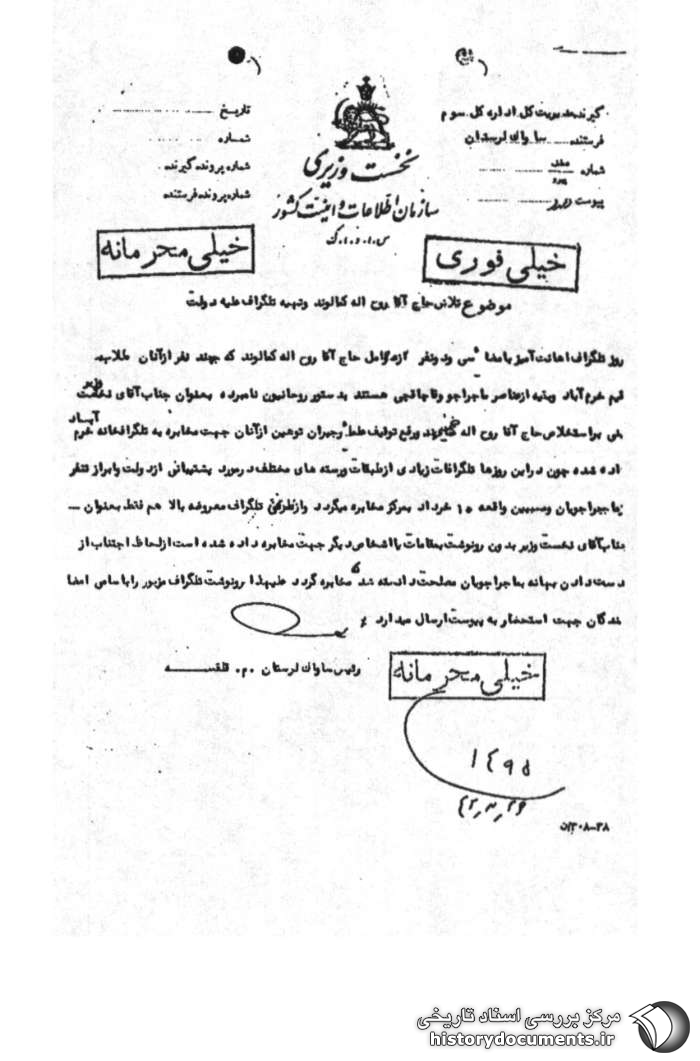 گیرنده مدیریت کل اداره کل سوم
فرستنده ساواک لرستان
شماره
پیوست دارد
تاریخ
شماره
شماره پرونده گیرنده
شماره پرونده فرستنده
نخست وزیری
سازمان اطلاعات و امنیت کشور
س.ا.و.ا.ک
خیلی محرمانه
خیلی فوری
موضوع تلاش حاج آقا روح اله کمالوند وتهیه تلگراف علیه دولت
روز تلگراف اهانت آمیز با مضا سی ودونفر از عوامل حاج آقا روح اله کمالوند که چند نفر از آنان طلاب
قیم خرم آباد وبقیه ازعناصر ماجراجو وقاچاقچی هستند بدستور روحانیون نامبرده بعنوان جناب آقای نخست وزیر
نی براستخلاص حاج آقا روح اله خمینی ورفع توقیف وجبران توهین ازآنان جهت مخابره به تلگرافخانه خرم آباد
اده شده چون دراین روزها تلگرافات زیادی ازطبقات ورسته های مختلف درمورد پشتیبانی ازدولت وابراز تنفر
زماجراجویان ومسببین واقعه ۱۵ خرداد بمرکز مخابره میگردد وازطرفی تلگراف معروضه بالا هم فقط بعنوان –
جناب آقای نخست وزیر بدون رونوشت بمقامات یا اشخاص دیگر جهت مخابره داده شده است ازلحاظ اجتناب از
دست دادن بهانه بماجراجویان مصلحت دانسته شد که مخابره گردد علیهذا رونوشت تلگراف مزبور را با سامی امضا
نندگان جهت استحضار به پیوست ارسال میدارد
رئیس ساواک لرستان .م.
خیلی محرمانه
۱۴۹۵
۴۲٫۳٫۲۶
۳۰۸-۲۸/ن
مرکز بررسی اسناد تاریخی
historydocuments.ir